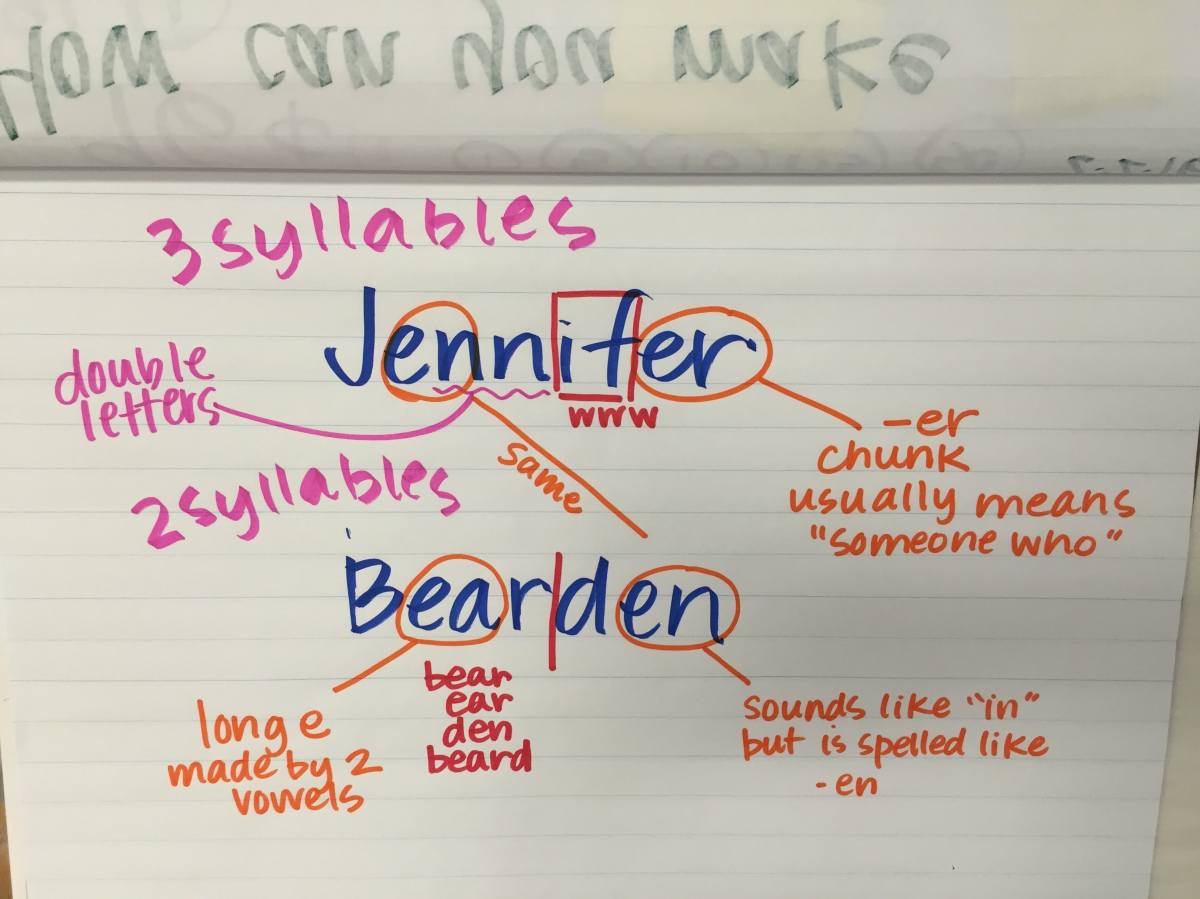 How can you make
3 syllables
Jennifer
double
letters
www
same
-er
chunk
usually means
"someone who"
2 syllables
Bearden
bear
ear
den
beard
long e
made by 2
vowels
sounds like "in"
but is spelled like
-en